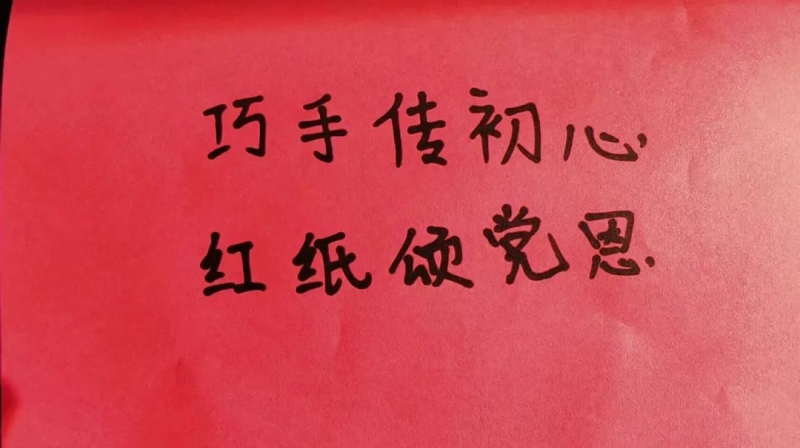 巧手传初心
红纸颂党恩